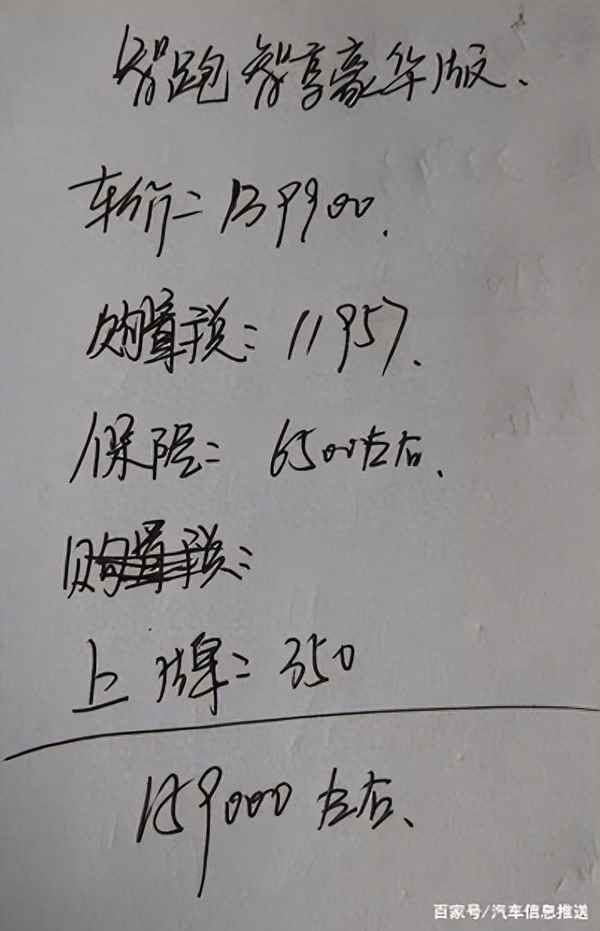 智跑智享豪华版、
车价=139900.
购置税=11957.
保险=6500左右.
购置税=
上牌=350
159000左右、
百家号/汽车信息推送